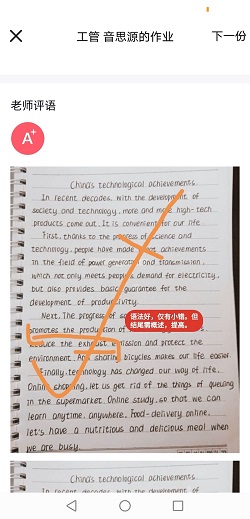 工管 音思源的作业
下一份
老师评语
A+
China's technological achievements.
In recent decades, with the development of
society and technology, more and more high-tech
products come out. It is convenient for our life
First, thanks to the progress of science and
technology, people have made achievements
in the field of power generation and transmission,
which not only meets people's demand for electricity,
but also provides basic guarantee for the
development of productivity.
Next, The progress of
promotes the production of
语法好，仅有小错。但
结尾需概述，提高。
reduce the exhaust emission and protect the
environment. And sharing bicycles makes our life easier.
Finally, technology has changed our way of life.
Online shopping, let us get rid of the things of queuing
in the supermarket. Online study, so that we can
learn anytime, anywhere. Food-delivery online,
let's have a nutritious and delicious meal when
we are busy.
China's technological achievements.
In recent decades, with the development of